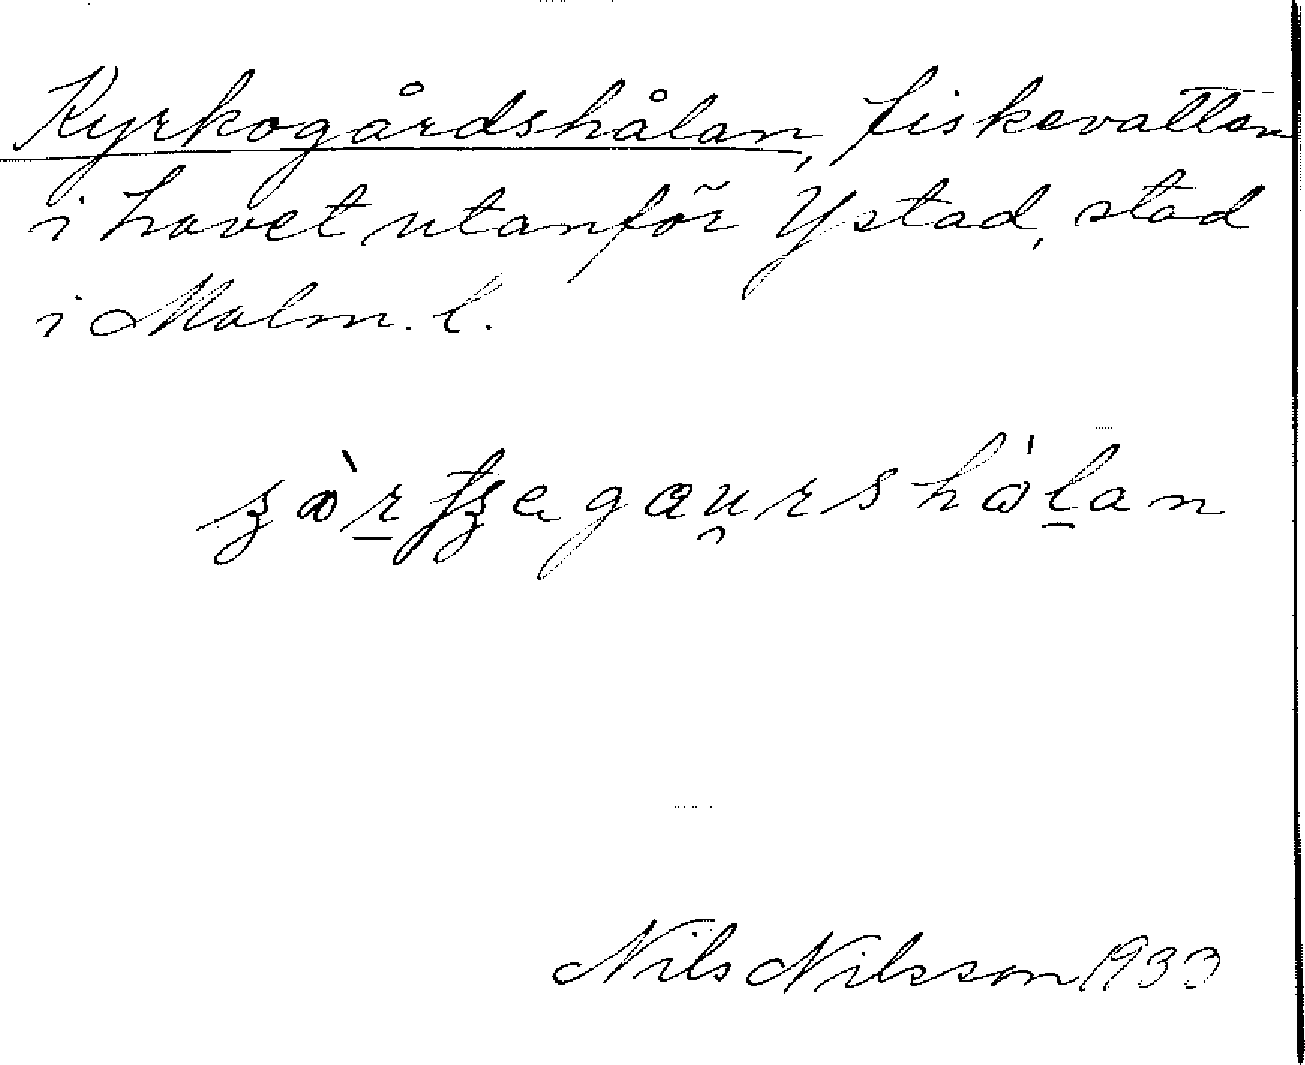 Kyrkogårdshålan, fiskevatten
i havet utanför Ystad, stad
i Malm. l.
Nils Nilsson 1933